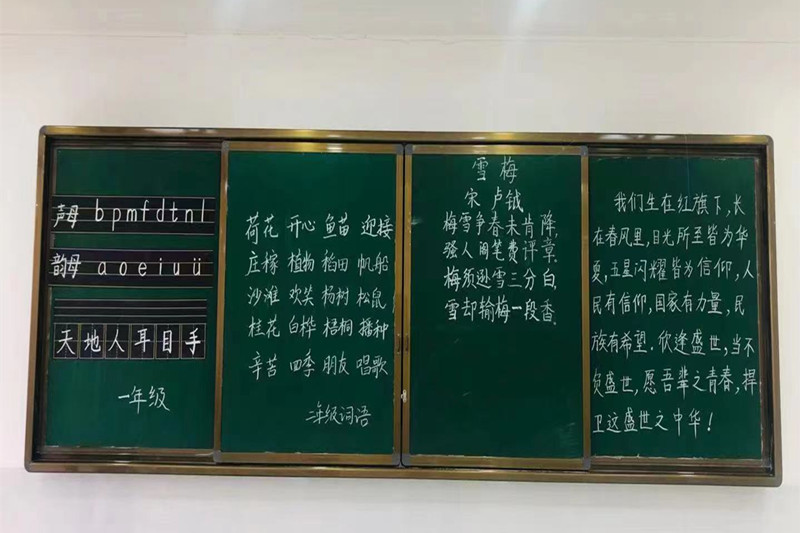 声母 b p m f d t n l
韵母 a o e i u ü
天地人耳目手
一年级
荷花 开心 鱼苗 迎接
庄稼 植物 稻田 帆船
沙滩 欢笑 杨树 松鼠
桂花 白桦 梧桐 播种
辛苦 四季 朋友 唱歌
二年级词语
雪梅
宋 卢钺
梅雪争春未肯降
人阁笔费评章
梅须逊雪三分白
雪却输梅一段香.
我们生在红旗下,长
在春风里,目光所至皆为华
夏,五星闪耀皆为信仰,人
民有信仰,国家有力量,民
族有希望.欣逢盛世,当不
负盛世,愿吾辈之青春,捍
卫这盛世之中华!